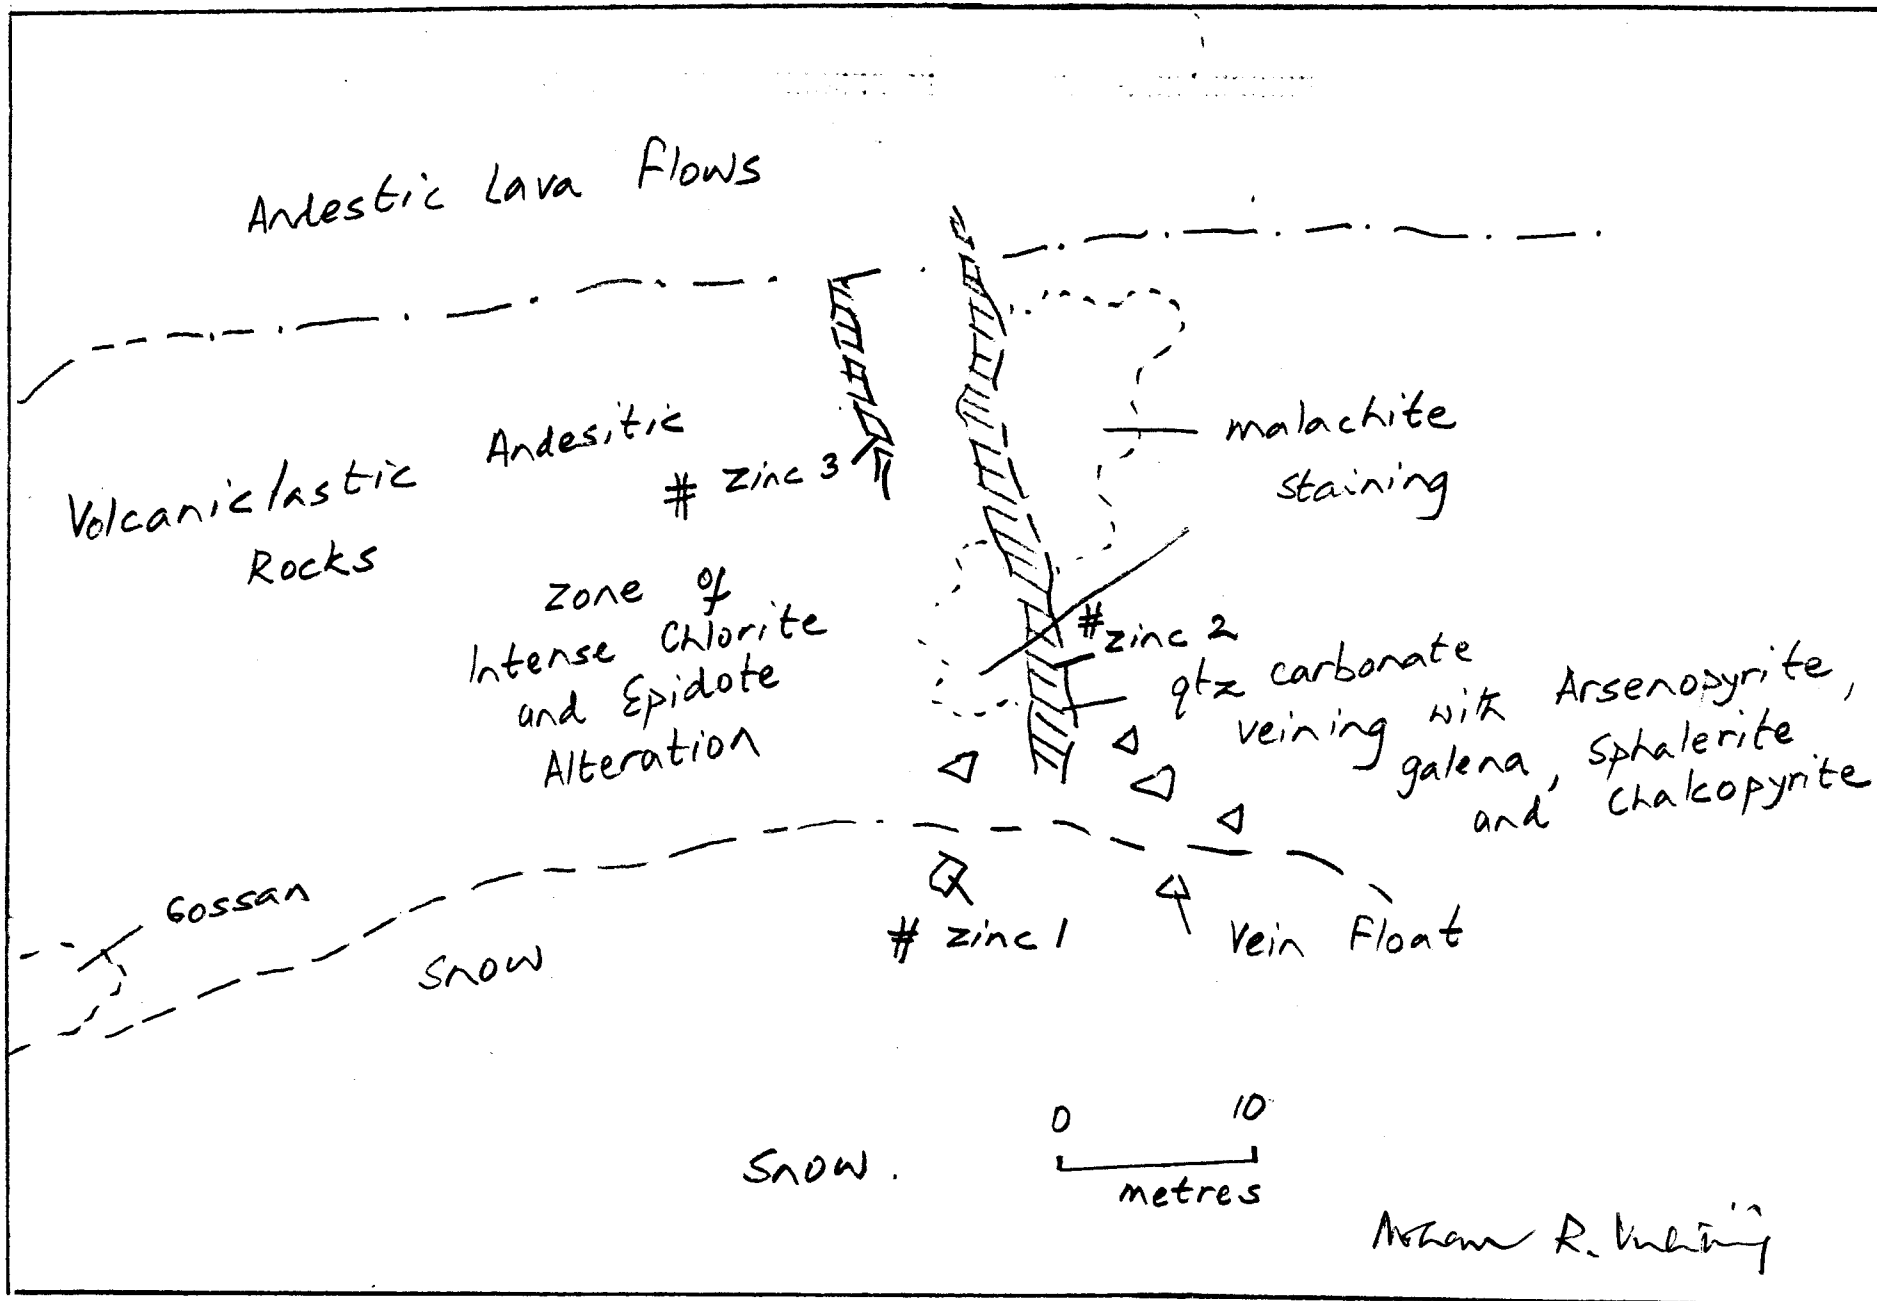 Andestic Lava Flows
Andesitic
Volcaniclastic
Rocks
# Zinc 3
malachite
staining
Zone of
Intense Chlorite
and Epidote
Alteration
# zinc 2
qtz carbonate
veining with Arsenopyrite,
galena, Sphalerite
and Chalcopyrite
Gossan
Snow
# zinc 1
Vein Float
Snow.
0 10
metres
R.